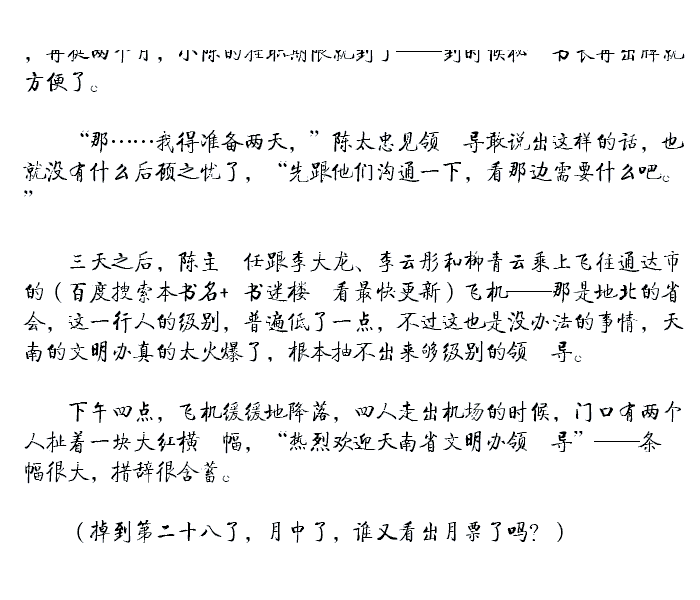 ，再挺两个月，小陈的挂职期限就到了——到时候秘 书长再出牌就
方便了。
“那……我得准备两天，”陈太忠见领 导敢说出这样的话，也
就没有什么后顾之忧了，“先跟他们沟通一下，看那边需要什么吧。
”
三天之后，陈主 任跟李大龙、李云彤和柳青云乘上飞往通达市
的（百度搜索本书名+ 书迷楼 看最快更新）飞机——那是地北的省
会，这一行人的级别，普遍低了一点，不过这也是没办法的事情，天
南的文明办真的太火爆了，根本抽不出来够级别的领 导。
下午四点，飞机缓缓地降落，四人走出机场的时候，门口有两个
人扯着一块大红横 幅，“热烈欢迎天南省文明办领 导”——条
幅很大，措辞很含蓄。
（掉到第二十八了，月中了，谁又看出月票了吗？）